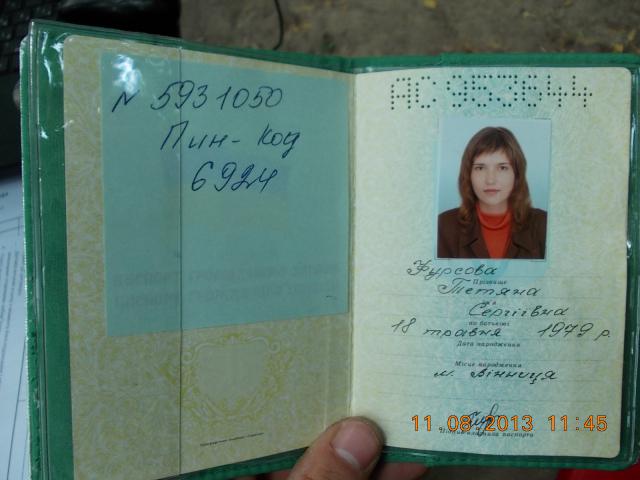 N 5931050
Пин-код
6924
АС 953644
Фурсова
Прізвище
Тетяна
ім'я
Сергіївна
по батькові
18 травня 1979 р.
Дата народження
Місце народження
м. Вінниця
11 08 2013 11:45
Підпис власника паспорта